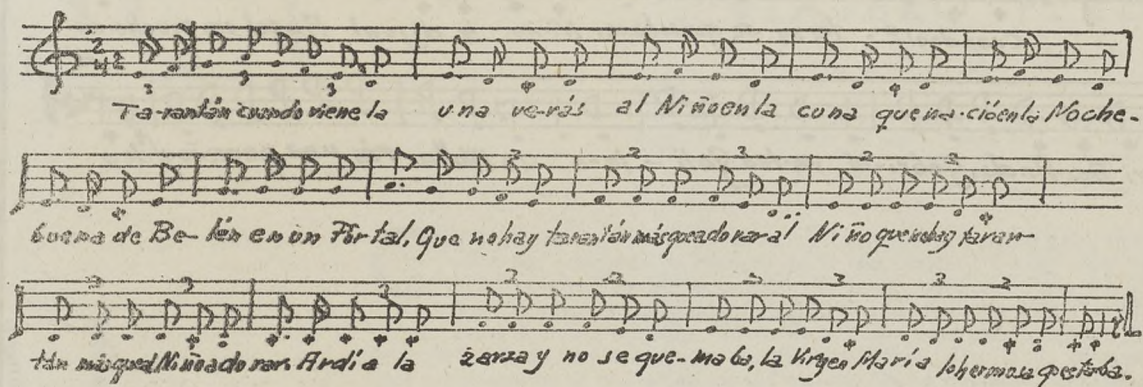 Ta-rantán cuando viene la una ve-rás al Niño en la cuna que na-ció en la Noche-
buena de Be-lén en un Portal, Que no hay tarantán más que adorar al Niño que no hay taran-
tán más que al Niño adorar. Ardía la zarza y no se que-maba, la Virgen María lo hermosa que estaba.